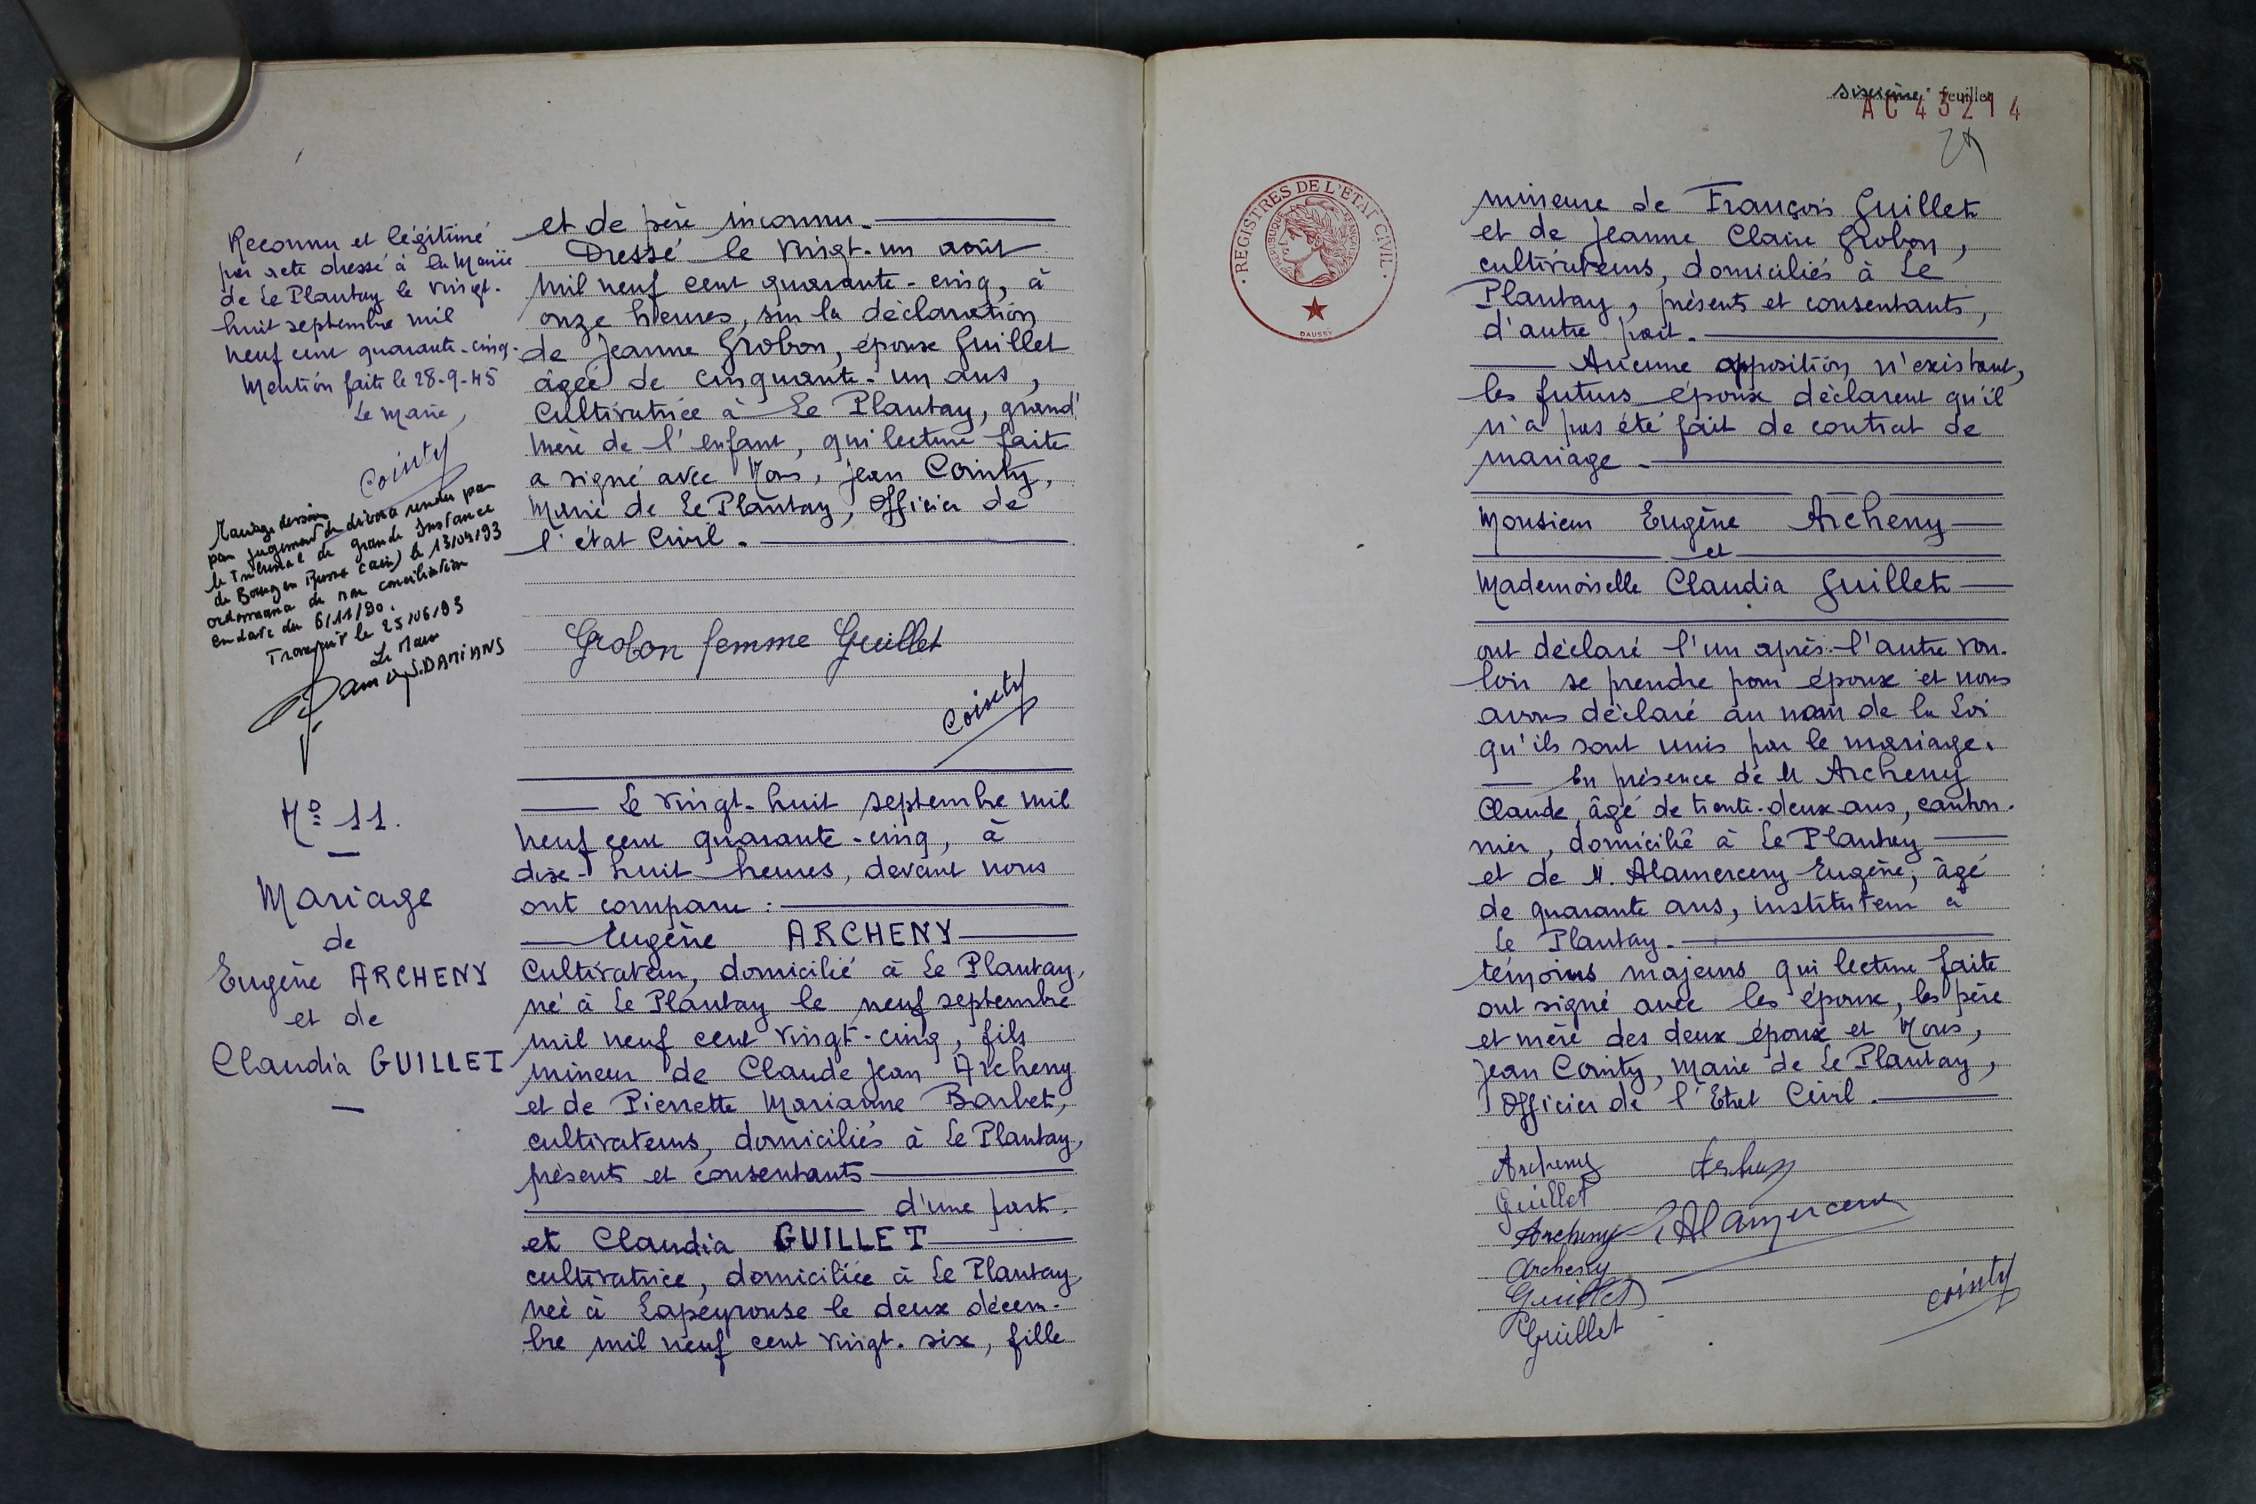 Reconnu et légitimé
par acte dressé à la Mairie
de Le Plantay le vingt-
huit septembre mil
neuf cent quarante-cinq.
Mention faite le 28-9-45
Le Maire,
Cointy
Mariage dissous
par jugement de divorce rendu par
le Tribunal de grande Instance
de Bourg en Bresse (ain) le 13/04/93
ordonnance de non conciliation
en date du 6/11/90.
Transcrit le 25/06/93
Le Maire
S. DAMIANS
et de père inconnu.
Dressé le vingt-un août
mil neuf cent quarante-cinq, à
onze heures, sur la déclaration
de Jeanne Grobon, épouse Guillet
âgée de cinquante-un ans,
cultivatrice à Le Plantay, grand'
mère de l'enfant, qui lecture faite
a signé avec Nous, Jean Cointy,
Maire de Le Plantay, Officier de
l'état Civil.
Grobon femme Guillet
Cointy
N° 11.
Mariage
de
Eugène ARCHENY
et de
Claudia GUILLET
Le vingt-huit septembre mil
neuf cent quarante-cinq, à
dix-huit heures, devant nous
ont comparu :
Eugène ARCHENY
cultivateur, domicilié à Le Plantay,
né à Le Plantay le neuf septembre
mil neuf cent vingt-cinq, fils
mineur de Claude Jean Archeny
et de Pierrette Marianne Barbet,
cultivateurs, domiciliés à Le Plantay,
présents et consentants
d'une part.
et Claudia GUILLET
cultivatrice, domiciliée à Le Plantay
née à Lapeyrouse le deux décem-
bre mil neuf cent vingt-six, fille
sixième feuillet
AC 43214
REGISTRES DE L'ÉTAT CIVIL
RÉPUBLIQUE FRANÇAISE
DAUSSY
mineure de François Guillet
et de Jeanne Claire Grobon,
cultivateurs, domiciliés à Le
Plantay, présents et consentants,
d'autre part.
Aucune opposition n'existant,
les futurs époux déclarent qu'il
n'a pas été fait de contrat de
mariage.
Monsieur Eugène Archeny
et
Mademoiselle Claudia Guillet
ont déclaré l'un après l'autre vou-
loir se prendre pour époux et nous
avons déclaré au nom de la Loi
qu'ils sont unis par le mariage.
En présence de M Archeny
Claude, âgé de trente-deux ans, canton-
nier, domicilié à Le Plantay
et de M. Alamercery Eugène, âgé
de quarante ans, instituteur à
Le Plantay.
témoins majeurs qui lecture faite
ont signé avec les époux, les père
et mère des deux époux et Nous,
Jean Cointy, Maire de Le Plantay,
Officier de l'Etat Civil.
Archeny
Guillet
Archeny Alamercery
Archeny
Guillet
Guillet
Cointy